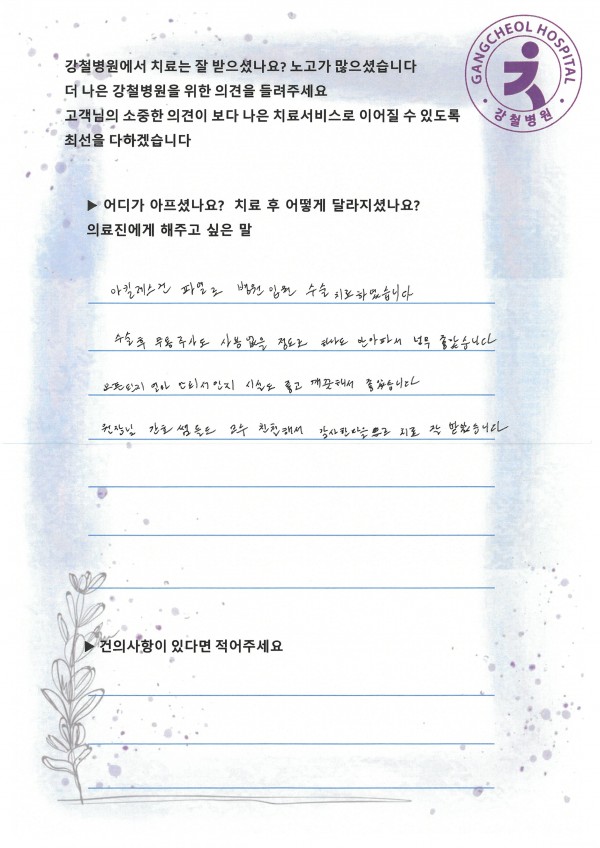 GANGCHEOL HOSPITAL
강철병원
강철병원에서 치료는 잘 받으셨나요? 노고가 많으셨습니다
더 나은 강철병원을 위한 의견을 들려주세요
고객님의 소중한 의견이 보다 나은 치료서비스로 이어질 수 있도록
최선을 다하겠습니다
▶ 어디가 아프셨나요? 치료 후 어떻게 달라지셨나요?
의료진에게 해주고 싶은 말
아킬레스건 파열로 병원 입원 수술 치료하였습니다
수술후 무통주사도 사용 없을 정도로 안아파서 너무 좋았습니다
시설도 좋고 깨끗해서 좋았습니다
원장님 간호 쌤들도 모두 친절해서 감사한다음으로 치료 잘 받았습니다
▶ 건의사항이 있다면 적어주세요